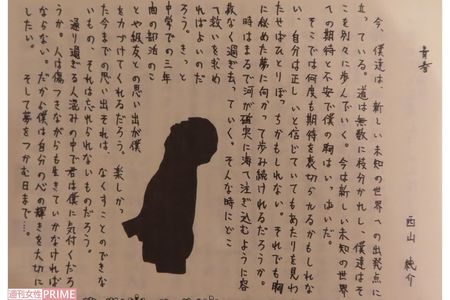 青春
西山 統介
今、僕達は、新しい未知の世界への出発点に
立っている。道は無数に枝分かれし、僕達はそ
こを別々に歩んでいく。今は新しい未知の世界
への期待と不安で僕の胸はいっぱいだ。
そこでは何度も期待を裏切られるかもしれな
い、自分は正しいと信じていてもあたりを見わ
たせばひとりぼっちかもしれない。それでも胸
に秘めた夢に向かって歩み続けれるだろうか。
時はまるで河が確実に海へ注ぎ込むように容
赦なく過ぎ去っていく。そんな時にどこ
へ救いを求め
ればよいのだ
ろう。きっと
中学での三年
間の部活のこ
とや級友との思い出が僕
を力づけてくれるだろう。楽しかっ
た今までの思い出それは、なくすことのできな
いもの、それは忘れられないものだろう。
通り過ぎる人混みの中で君は僕に気付くだろ
うか。人は傷つきながらも生きていかなければ
ならない。だから僕は自分の心の輝きを大切に
したい。そして夢をつかむ日まで…。
週刊女性PRIME